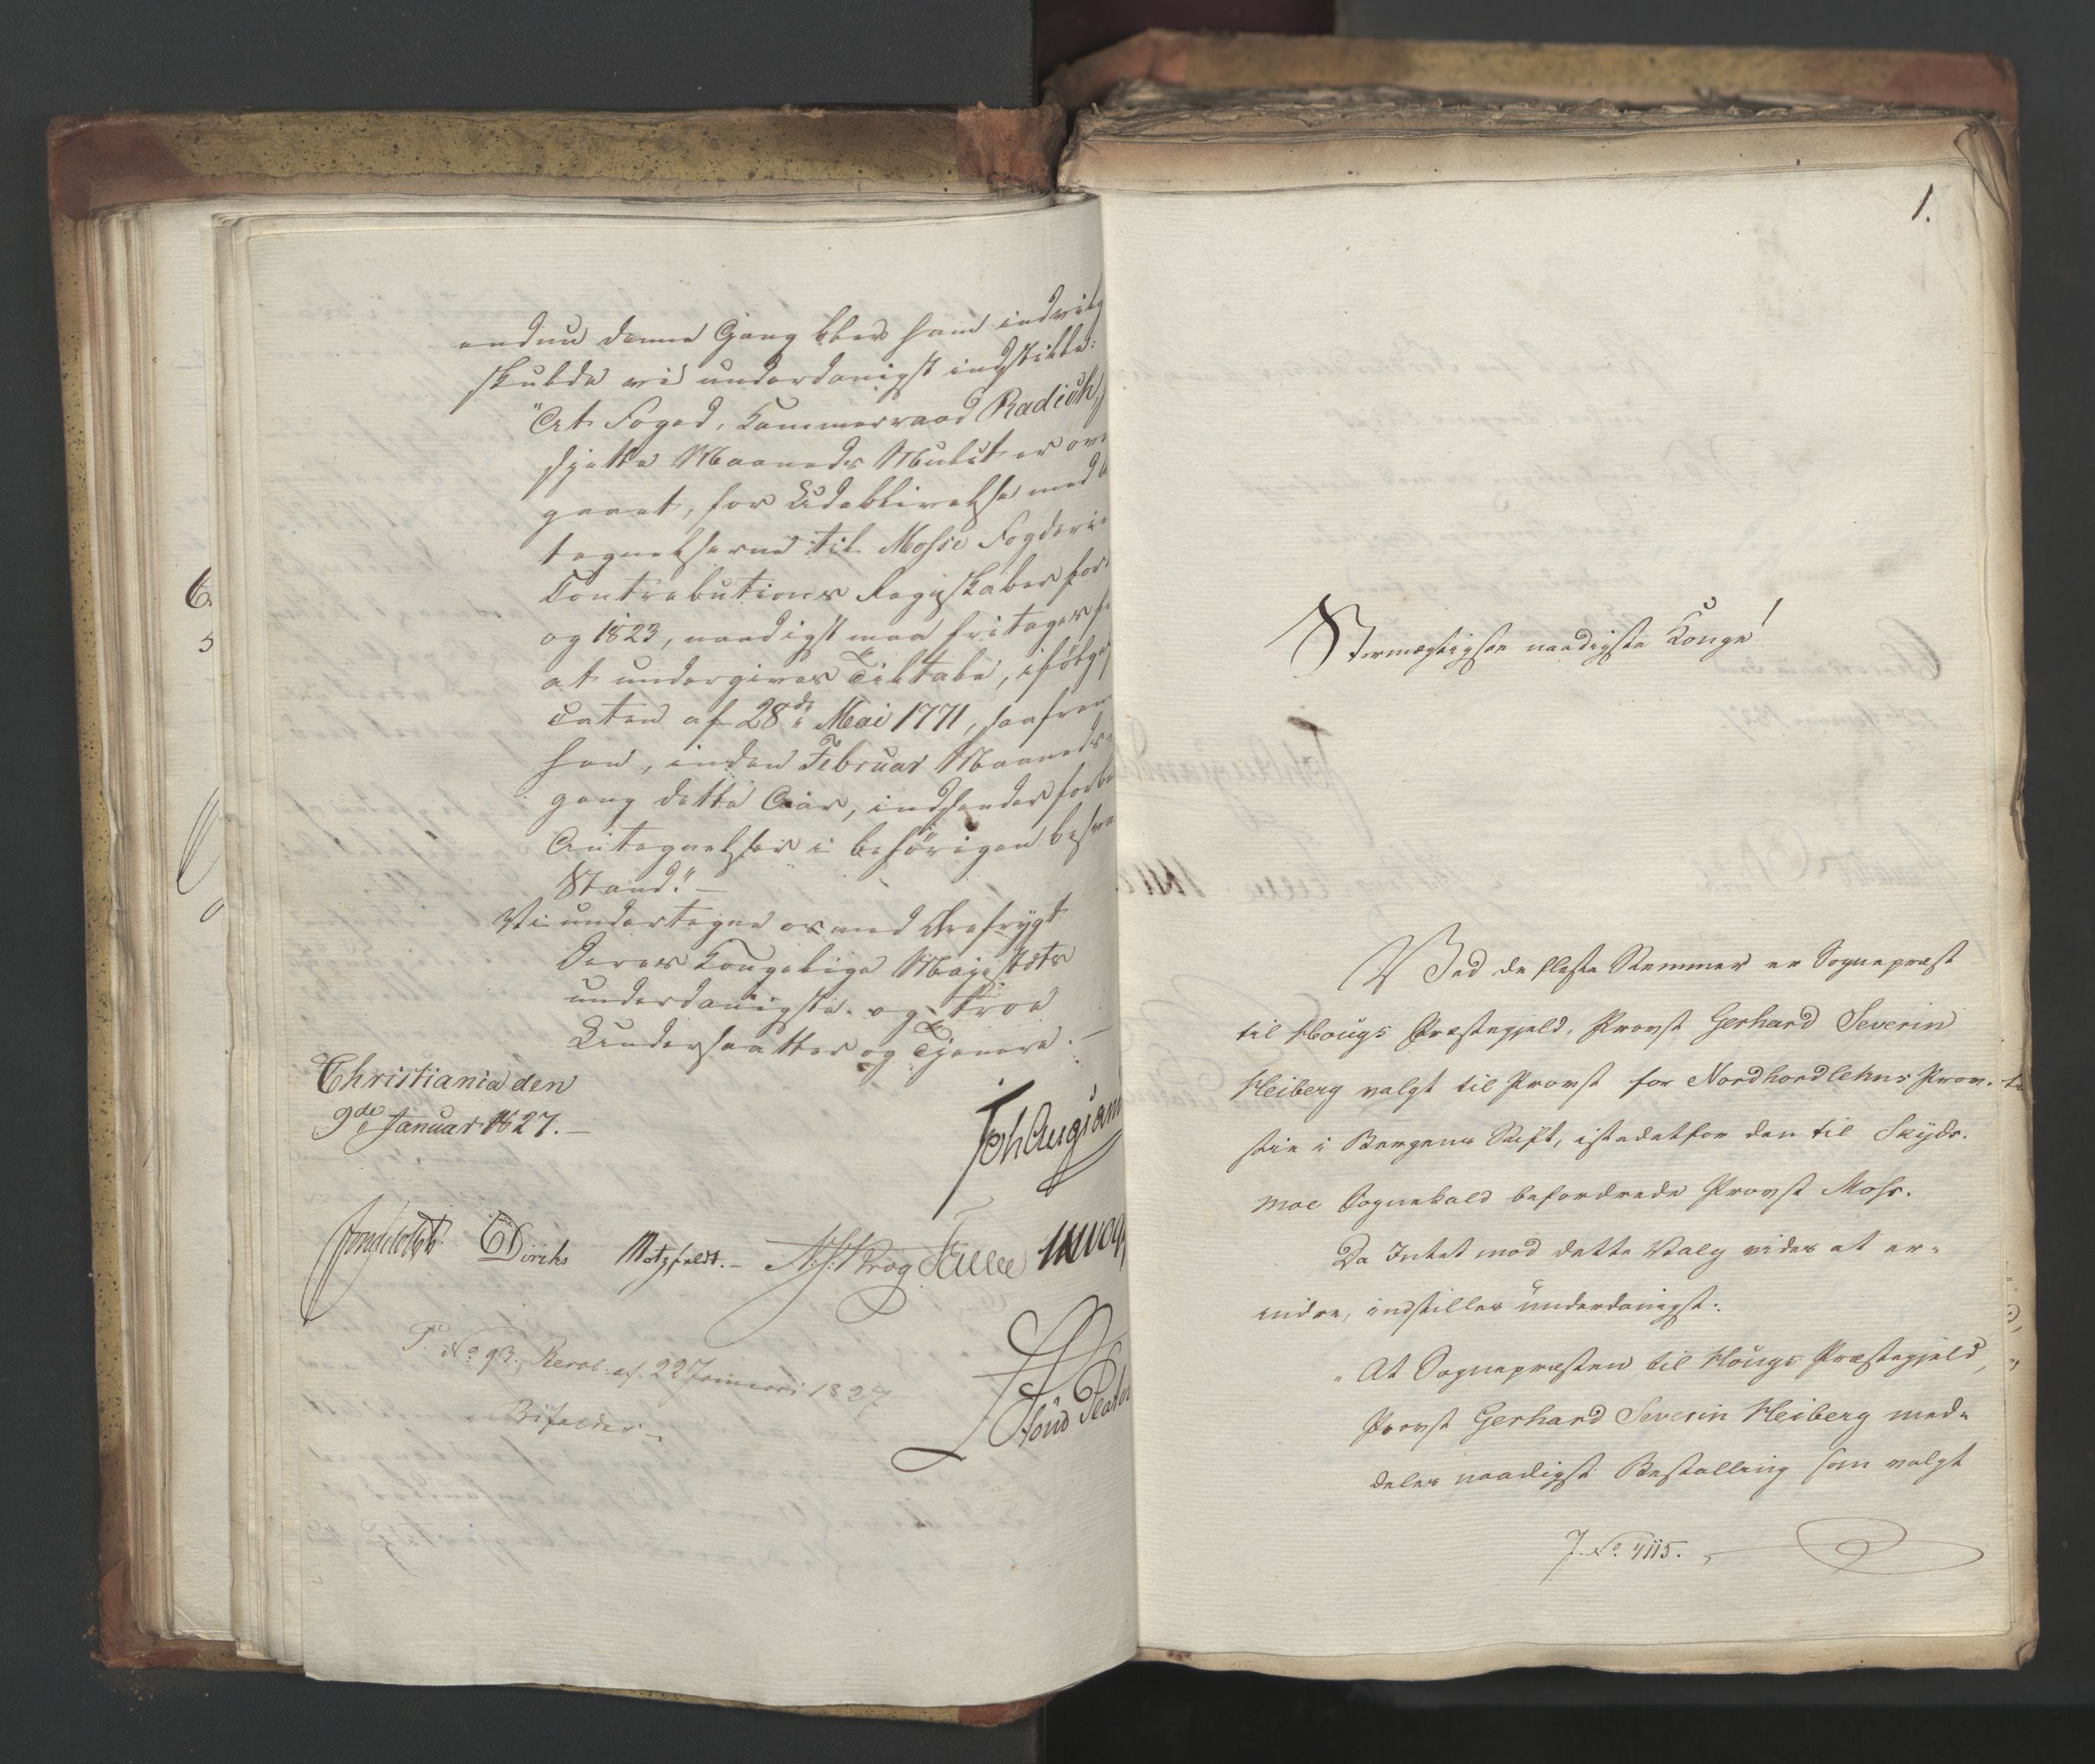 endnu denne Gang blev ham indvilg
skulde vi underdanigst indstille:
"At Foged, Kammerraad Radich,
sjette Maaneds Mulct er over
gaaet, for Udeblivelse med
tegnelserne til Mosse Fogderie
Contributions Regnskaber for
og 1823, naadigst maa fritages f
at undergives Tiltale, ifølge
caten af 28de Mai 1771, saafrem
han, inden Februar Maaneds
gang dette Aar, indsender forbe
Antegnelser i behörigen besva
Stand." —
Vi undertegne os med Ærefrygt
Deres Kongelige Majestæts
underdanigste og troe
Undersaatter og Tjenere. —
Christiania den
9de Januar 1827. —
Joh Aug Sand
Jonas Collett
C Diriks Motzfeldt. — N: J: Krog
P. No 93. Resol. af 22 Januari 1827
Bifaldes —
1.
Stormægtigste naadigste Konge!
Ved de fleste Stemmer er Sognepræst
til Hougs Præstegjeld, Provst Gerhard Severin
Heiberg valgt til Provst for Nordhordlehns Prov-
stie i Bergens Stift, istedetfor den til Skÿds-
moe Sognekald befordrede Provst Moss.
Da Intet mod dette Valg vides at er-
indre, indstilles ünderdanigst:
"At Sognepræsten til Hougs Præstegjeld,
Provst Gerhard Severin Heiberg med-
deles naadigst Bestalling som valgt
J. No. 4115.